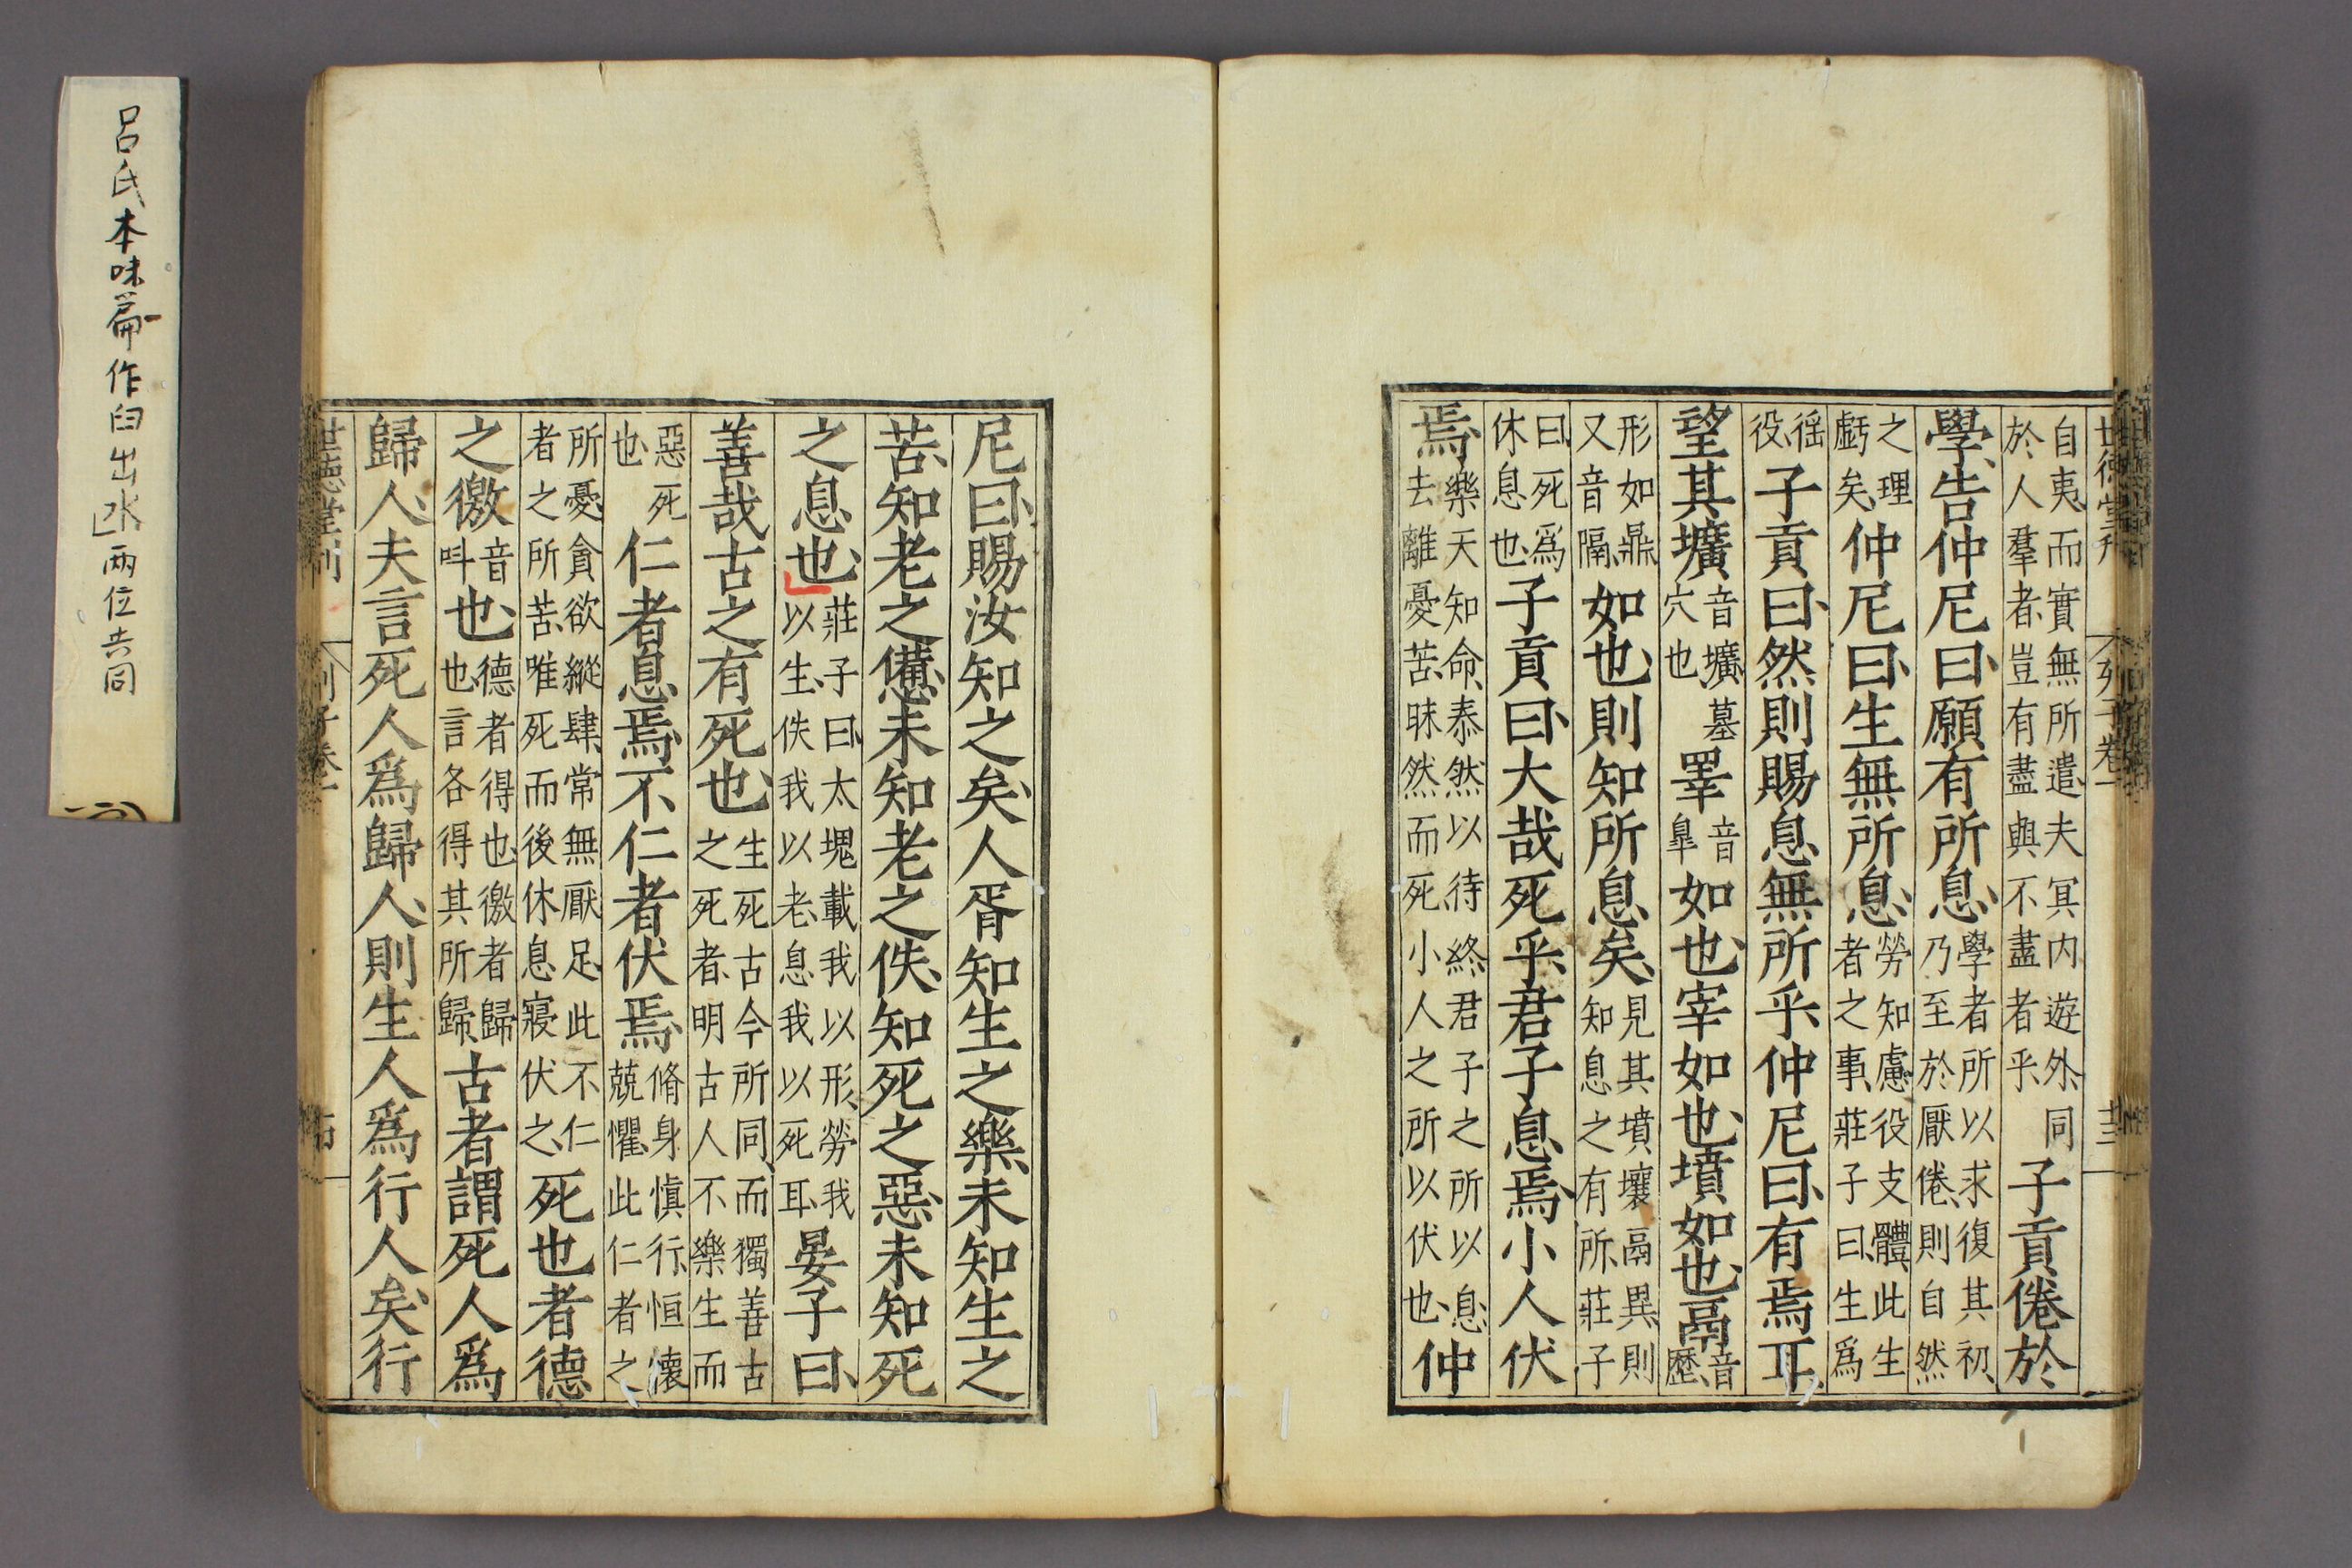 世德堂刊 列子卷一 十三
自夷而實無所遣夫冥内遊外同
於人羣者豈有盡與不盡者乎
子貢倦於
學告仲尼曰願有所息
學者所以求復其初
乃至於厭倦則自然
之理
虧矣
仲尼曰生無所息
勞知慮役支體此生
者之事莊子曰生爲
徭
役
子貢曰然則賜息無所乎仲尼曰有焉耳
望其壙
音壙墓
穴也
睪
音
臯
如也宰如也墳如也鬲
音
歷
形如鼎
又音隔
如也則知所息矣
見其墳壤鬲異則
知息之有所莊子
曰死爲
休息也
子貢曰大哉死乎君子息焉小人伏
焉
樂天知命泰然以待終君子之所以息
去離憂苦昧然而死小人之所以伏也
仲
尼曰賜汝知之矣人胥知生之樂未知生之
苦知老之憊未知老之佚知死之惡未知死
之息也
莊子曰太塊載我以形勞我
以生佚我以老息我以死耳
晏子曰
善哉古之有死也
生死古今所同而獨善古
之死者明古人不樂生而
惡死
也
仁者息焉不仁者伏焉
脩身慎行恒懷
兢懼此仁者之
所憂貪欲縱肆常無厭足此不仁
者之所苦唯死而後休息寢伏之
死也者德
之徼
音
叫
也
德者得也徼者歸
也言各得其所歸
古者謂死人爲
歸人夫言死人爲歸人則生人爲行人矣行
世德堂刊 列子卷一
呂氏本味篇作臼出水兩位去同